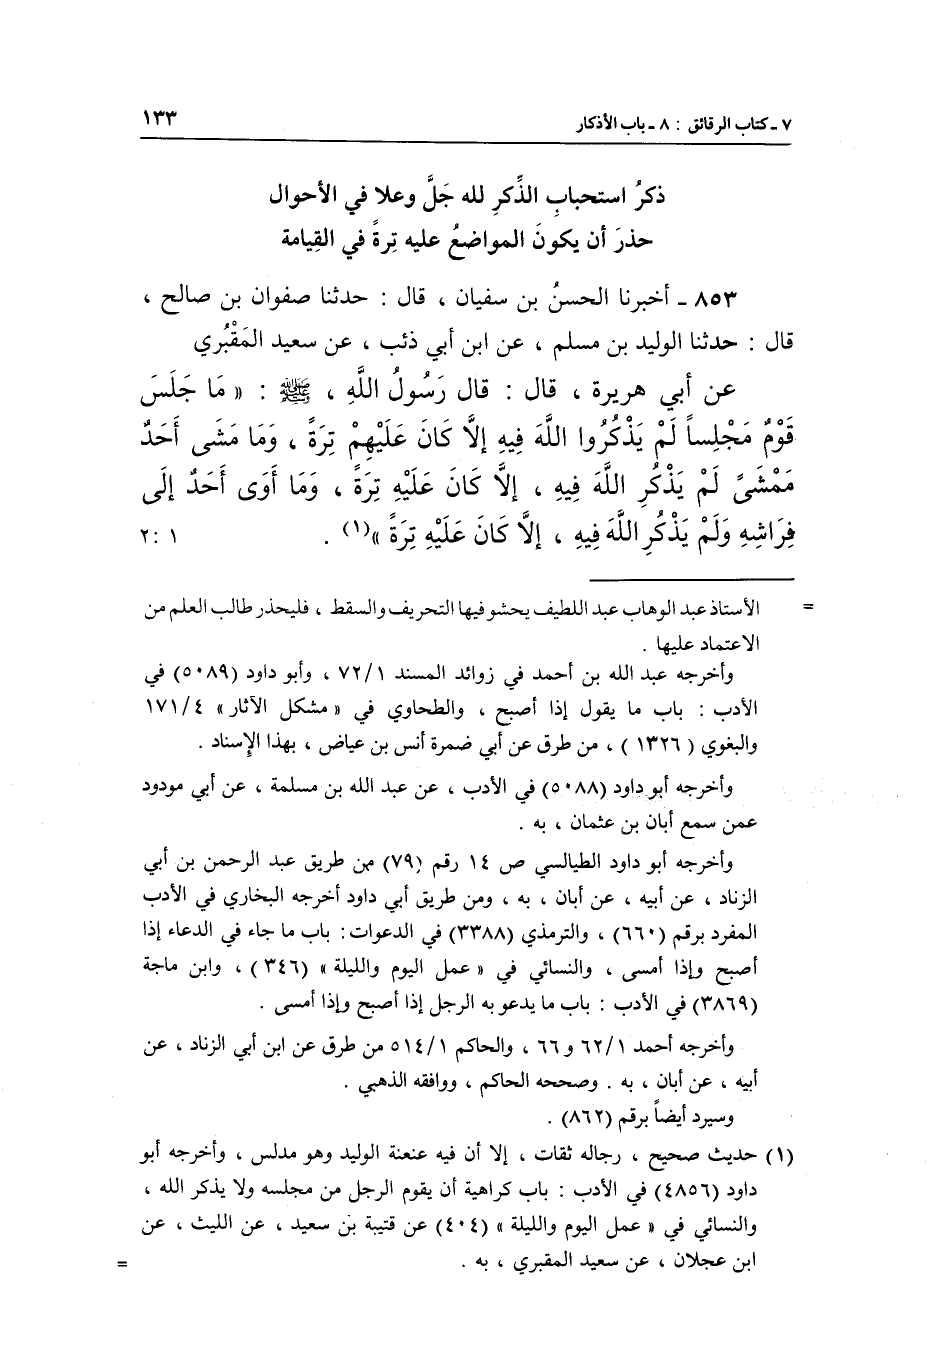 ٧ - كتاب الرقائق : ٨ - باب الأذكار ١٣٣
ذكرُ استحبابِ الذِّكرِ لله جَلَّ وعلا في الأحوال
حذرَ أن يكونَ المواضعُ عليه تِرةً في القِيامة
٨٥٣ - أخبرنا الحسنُ بن سفيان ، قال : حدثنا صفوان بن صالح ،
قال : حدثنا الوليد بن مسلم ، عن ابن أبي ذئب ، عن سعيد المَقْبُري
عن أبي هريرة ، قال : قال رَسُولُ اللَّهِ ، ﷺ : « مَا جَلَسَ
قَوْمٌ مَجْلِساً لَمْ يَذْكُرُوا اللَّهَ فِيهِ إلاَّ كَانَ عَلَيْهِمْ تِرَةً ، وَمَا مَشَى أَحَدٌ
مَمْشَىً لَمْ يَذْكُرِ اللَّهَ فِيهِ ، إلاَّ كَانَ عَلَيْهِ تِرَةً ، وَمَا أَوَى أَحَدٌ إلَى
فِرَاشِهِ وَلَمْ يَذْكُرِ اللَّهَ فِيهِ ، إلاَّ كَانَ عَلَيْهِ تِرَةً »(١) . ١ :٢
= الأستاذ عبد الوهاب عبد اللطيف يحشو فيها التحريف والسقط ، فليحذر طالب العلم من
الاعتماد عليها .
وأخرجه عبد الله بن أحمد في زوائد المسند ٧٢/١ ، وأبو داود (٥٠٨٩) في
الأدب : باب ما يقول إذا أصبح ، والطحاوي في « مشكل الآثار » ١٧١/٤
والبغوي (١٣٢٦) ، من طرق عن أبي ضمرة أنس بن عياض ، بهذا الإسناد .
وأخرجه أبو داود (٥٠٨٨) في الأدب ، عن عبد الله بن مسلمة ، عن أبي مودود
عمن سمع أبان بن عثمان ، به .
وأخرجه أبو داود الطيالسي ص ١٤ رقم (٧٩) من طريق عبد الرحمن بن أبي
الزناد ، عن أبيه ، عن أبان ، به ، ومن طريق أبي داود أخرجه البخاري في الأدب
المفرد برقم (٦٦٠) ، والترمذي (٣٣٨٨) في الدعوات : باب ما جاء في الدعاء إذا
أصبح وإذا أمسى ، والنسائي في « عمل اليوم والليلة » (٣٤٦) ، وابن ماجة
(٣٨٦٩) في الأدب : باب ما يدعو به الرجل إذا أصبح وإذا أمسى .
وأخرجه أحمد ٦٢/١ و ٦٦ ، والحاكم ٥١٤/١ من طرق عن ابن أبي الزناد ، عن
أبيه ، عن أبان ، به . وصححه الحاكم ، ووافقه الذهبي .
وسيرد أيضاً برقم (٨٦٢) .
(١) حديث صحيح ، رجاله ثقات ، إلا أن فيه عنعنة الوليد وهو مدلس ، وأخرجه أبو
داود (٤٨٥٦) في الأدب : باب كراهية أن يقوم الرجل من مجلسه ولا يذكر الله ،
والنسائي في « عمل اليوم والليلة » (٤٠٤) عن قتيبة بن سعيد ، عن الليث ، عن
ابن عجلان ، عن سعيد المقبري ، به . =